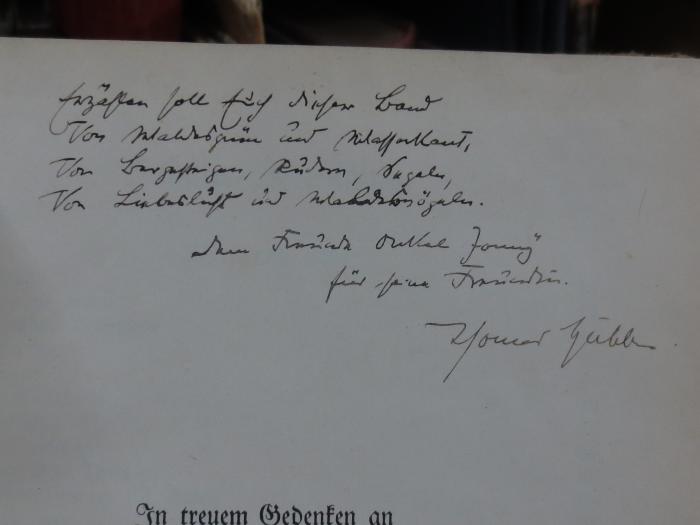 Erzählen soll Euch dieser Band
Von Waldesgrün und Wasserkant,
Von Bergsteigen, Rudern, Segeln,
Von Liebeslust und Waldesvögeln.
dem Freunde Onkel Jonny
für seine Freundin.
Thomas
In treuem Gedenken an